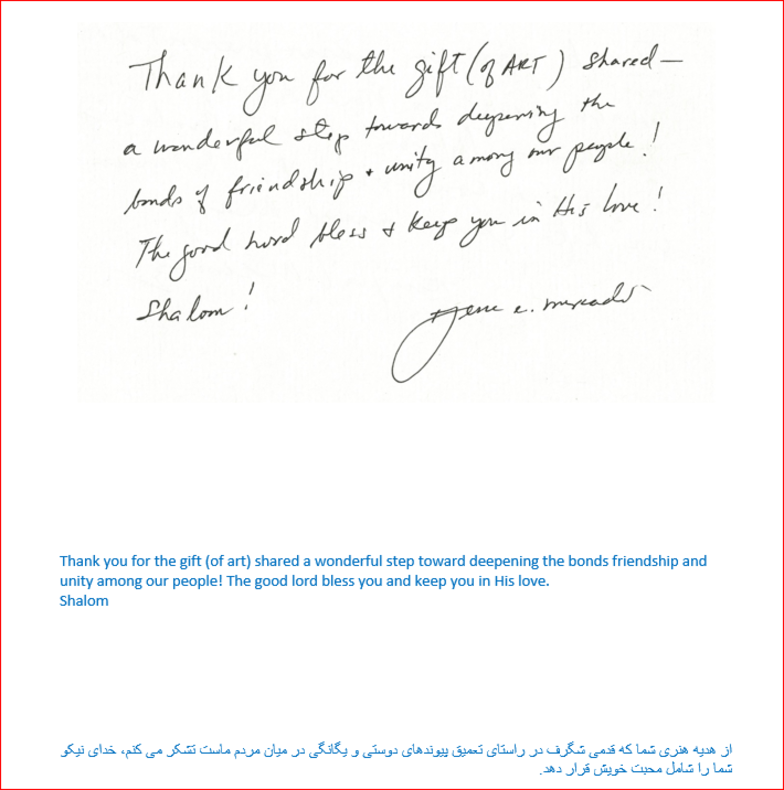 Thank you for the gift (of ART) shared—
a wonderful step towards deepening the
bonds of friendship + unity among our people!
The good Lord bless & keep you in His love!
Shalom!
Gene e.
Thank you for the gift (of art) shared a wonderful step toward deepening the bonds friendship and
unity among our people! The good lord bless you and keep you in His love.
Shalom
از هدیه هنری شما که قدمی شگرف در راستای تعمیق پیوندهای دوستی و یگانگی در میان مردم ماست تشکر می کنم، خدای نیکو
شما را شامل محبت خویش قرار دهد.